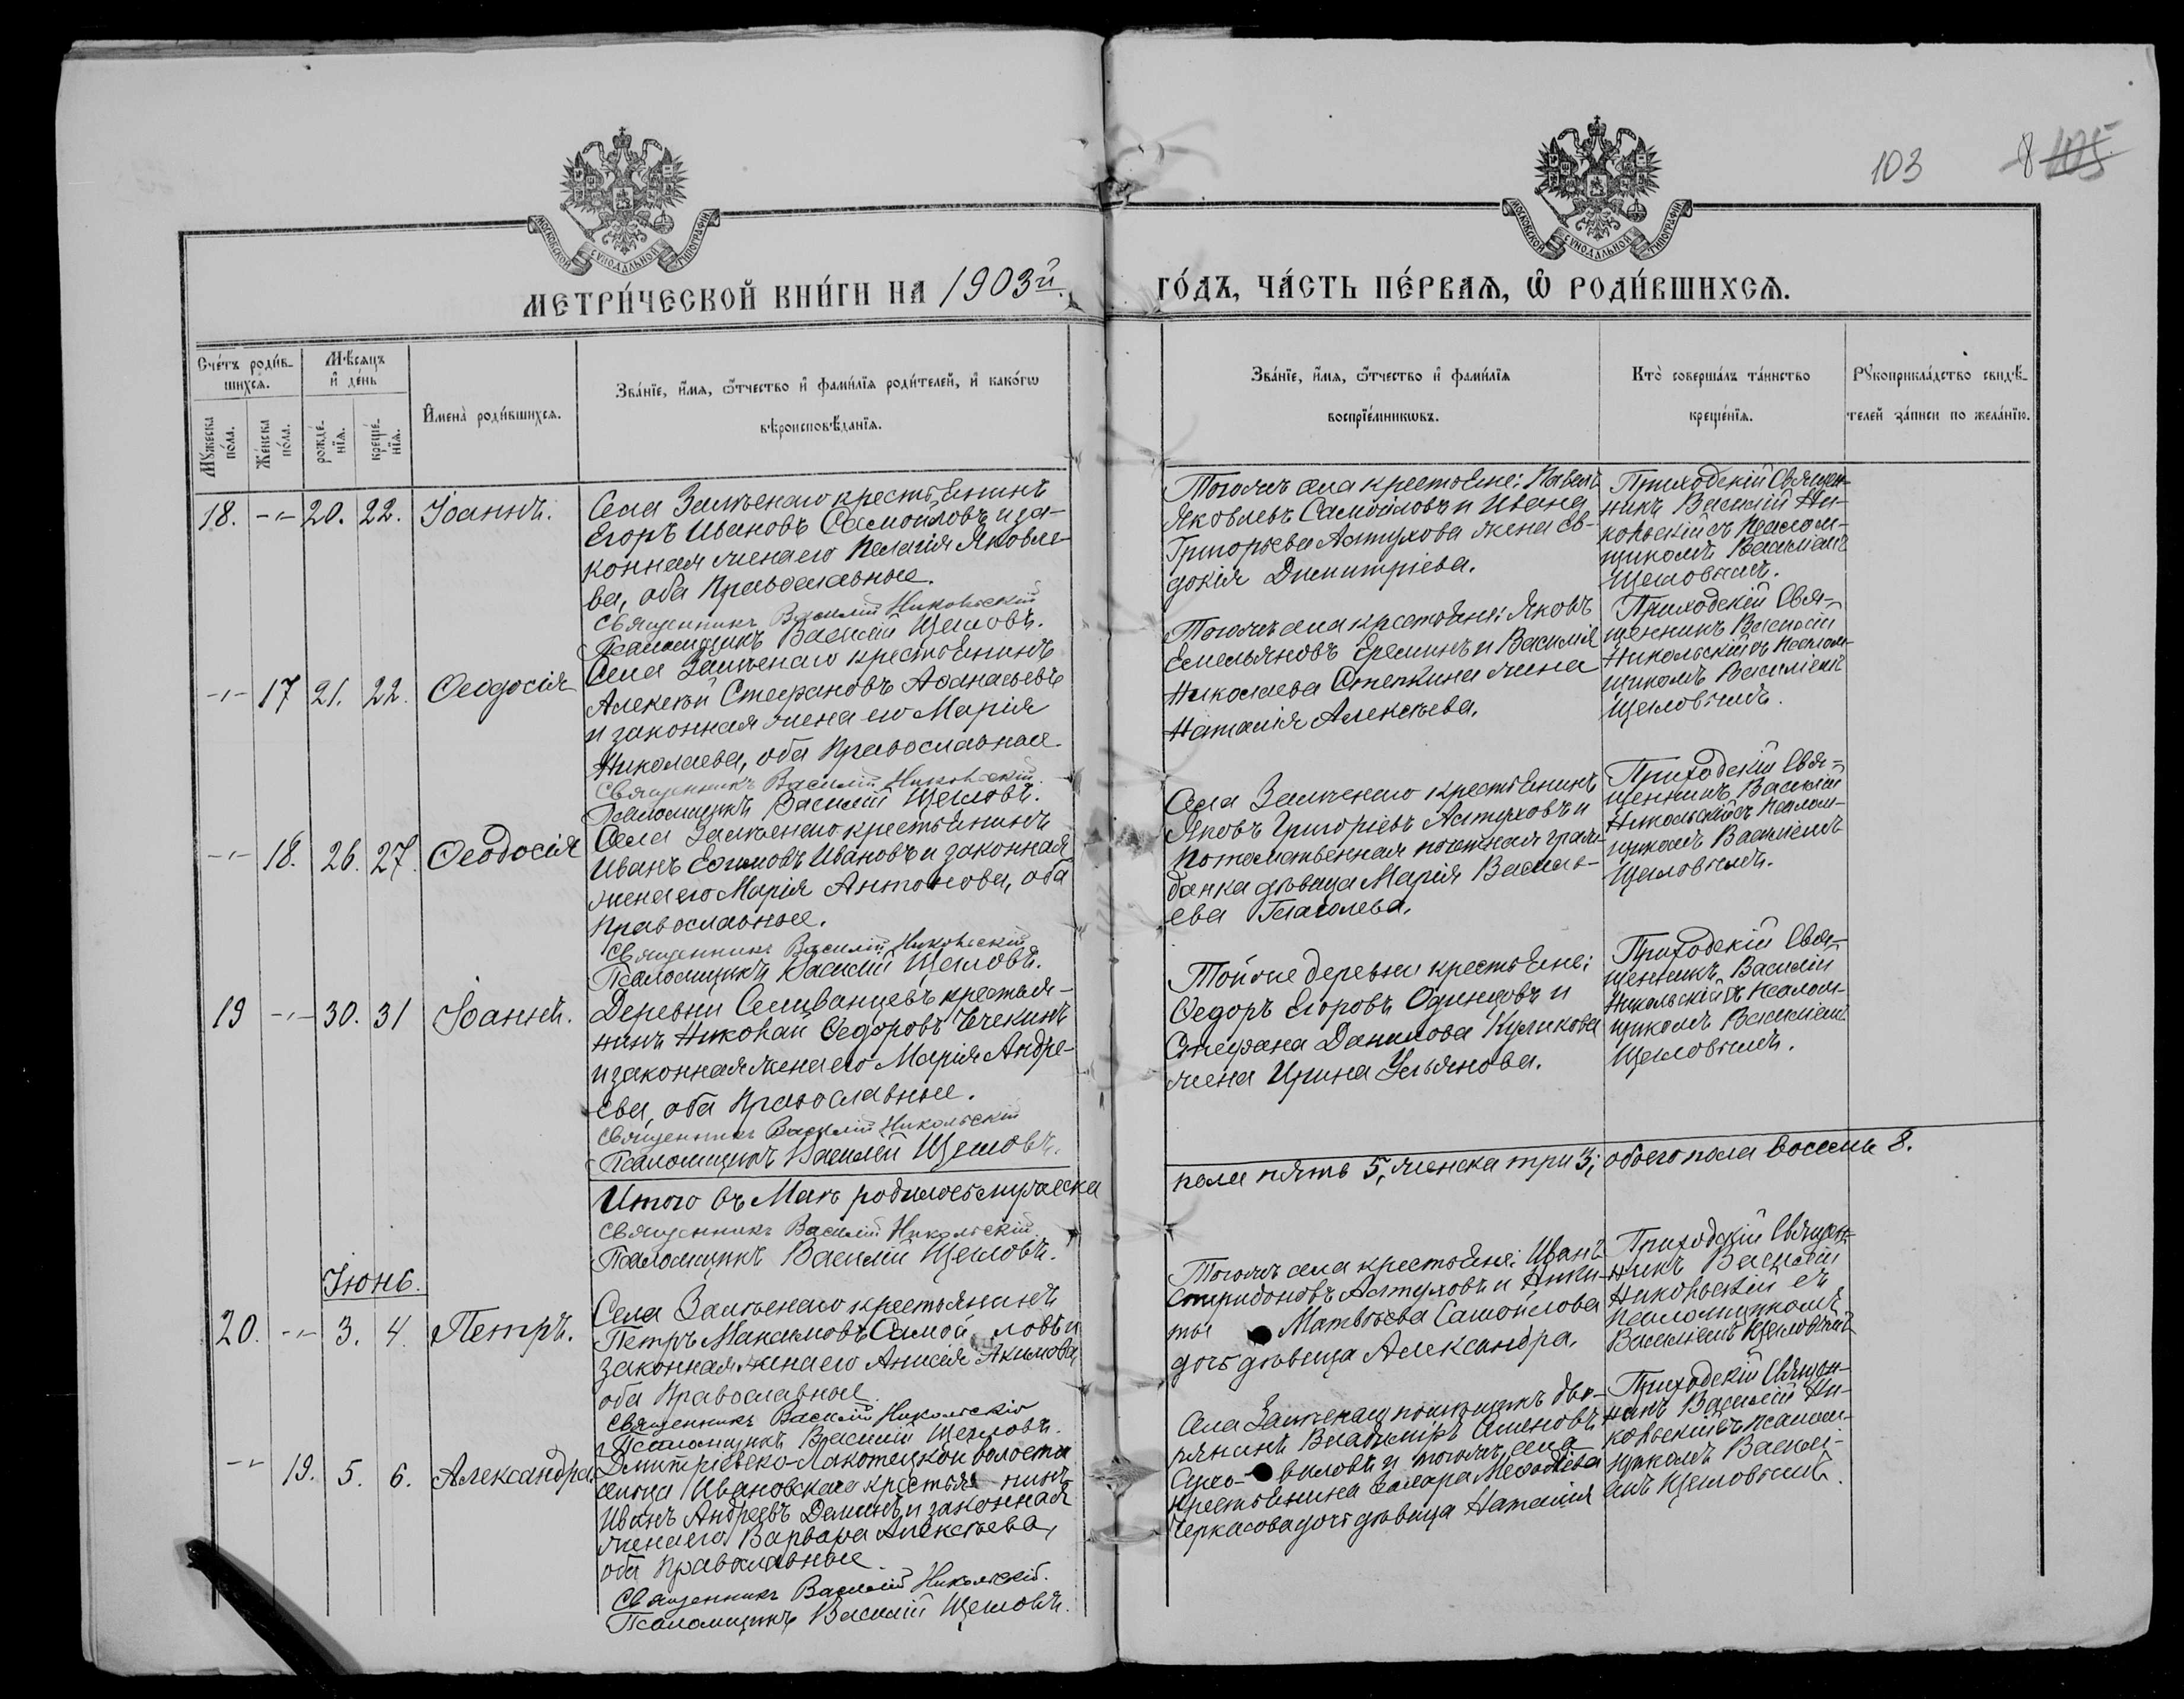 103
8 105
МОСКОВСКОЙ СѴНОДАЛЬНОЙ ТИПОГРАФІИ
МОСКОВСКОЙ СѴНОДАЛЬНОЙ ТИПОГРАФІИ
МЕТРИ́ЧЕСКОЙ КНИ́ГИ НА 1903й
ГО́ДЪ, ЧА́СТЬ ПЕ́РВАЯ, Ѡ РОДИ́ВШИХСЯ.
Сче́тъ роди́в-
шихся.
Мѣсяцъ
и де́нь
Му́жеска по́ла.
Же́нска по́ла.
рожде́-
нїя.
креще́-
нїя.
Имена̀ роди́вшихся.
Зва́нїе, и́мя, ѻ́тчество и фами́лїя роди́телей, и како́гѡ
вѣроисповѣ́данїя.
Зва́нїе, и́мя, ѻ́тчество и фами́лїя
воспрїе́мникѡвъ.
Кто̀ соверша́лъ та́инство
креще́нїя.
Рꙋкоприкла́дство свидѣ́-
телей за́писи по жела́нїю.
18. -"- 20. 22. Іоаннъ.
Села Замѣтнаго крестьянинъ
Егоръ Ивановъ Самойловъ и за-
конная жена его Пелагія Яковле-
ва, оба Православные.
Священникъ Василій Никольскій
Псаломщикъ Василій Щегловъ.
Тогожъ села крестьяне: Павелъ
Яковлевъ Самойловъ и Ивана
Григорьева Алтухова жена Ев-
докія Димитріева.
Приходскій Священ-
никъ Василій Ни-
кольскій съ Псалом-
щикомъ Василіемъ
Щегловымъ.
-"- 17 21. 22. Ѳеодосія
Села крестьянинъ
Алексѣй Стефановъ Аѳанасьевъ
и законная жена его Марія
Николаева, оба Православные.
Священникъ Василій Никольскій.
Псаломщикъ Василій Щегловъ.
Тогожъ села крестьяне: Яковъ
Емельяновъ Ереминъ и Василія
Николаева Степкина жена
Наталія Алексѣева.
Приходскій Свя-
щенникъ Василій
Никольскій съ Псалом-
щикомъ Василіемъ
Щегловымъ.
-"- 18. 26. 27. Ѳеодосія
Села крестьянинъ
Иванъ Ефимовъ Ивановъ и законная
жена его Марія Антонова, оба
Православные.
Священникъ Василій Никольскій
Псаломщикъ Василій Щегловъ.
Села крестьянинъ
Яковъ Григорьевъ Алтуховъ и
Потомственная почетная граж-
данка дѣвица Марія Василь-
ева Глаголева.
Приходскій Свя-
щенникъ Василій
Никольскій съ Псалом-
щикомъ Василіемъ
Щегловымъ.
19 -"- 30. 31 Іоаннъ.
Деревни Селиванцевъ крестья-
нинъ Николай Ѳедоровъ Чечекинъ
и законная жена его Марія Андре-
ева, оба Православные.
Священникъ Василій Никольскій
Псаломщикъ Василій Щегловъ.
Тойже деревни крестьяне:
Ѳедоръ Егоровъ Одинцовъ и
Стефана Данилова Куликова
жена Ирина Ульянова.
Приходскій Свя-
щенникъ Василій
Никольскій съ Псалом-
щикомъ Василіемъ
Щегловымъ.
Итого въ Маѣ родилось мужеска
пола пять 5, женска три 3; обоего пола восемь 8.
Священникъ Василій Никольскій
Псаломщикъ Василій Щегловъ.
Іюнь.
20. -"- 3. 4. Петръ.
Села крестьянинъ
Петръ Максимовъ Самойловъ и
законная жена его Анисія Акимова,
оба Православные
Священникъ Василій Никольскій
Псаломщикъ Василій Щегловъ.
Тогожъ села крестьяне: Иванъ
Спиридоновъ Алтуховъ и Ники-
ты Матвѣева Самойлова
дочь дѣвица Александра.
Приходскій Священ-
никъ Василій
Никольскій съ
Псаломщикомъ
Василіемъ Щегловымъ
-"- 19. 5. 6. Александра
волости
сельца Ивановскаго крестьянинъ
Иванъ Андреевъ Деминъ и законная
жена его Варвара Алексѣева,
оба Православные
Священникъ Василій Никольскій.
Псаломщикъ Василій Щегловъ.
Села помѣщикъ дво-
рянинъ Владиміръ Семеновъ
и тогожъ села
крестьянина Меѳодіева
Черкасова дочь дѣвица Наталія
Приходскій Священ-
никъ Василій Ни-
кольскій съ Псалом-
щикомъ Василі-
емъ Щегловымъ.